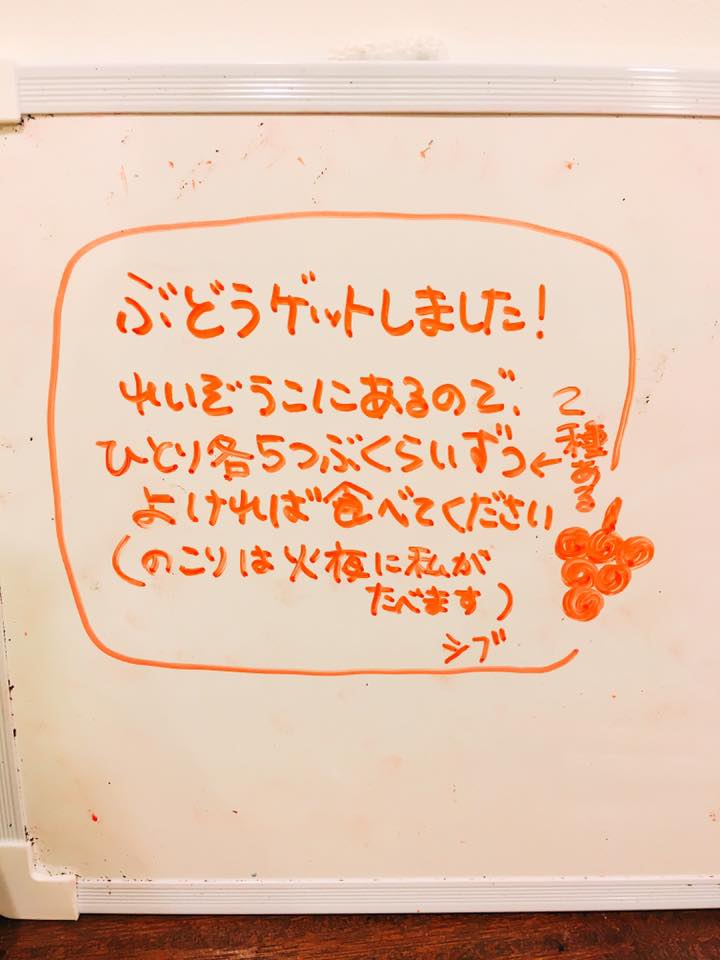 ぶどうゲットしました!
れいぞうこにあるので、
ひとり各5つぶくらいずつ←
2種ある
よければ食べてください
(のこりは火夜に私が
たべます)
シブ